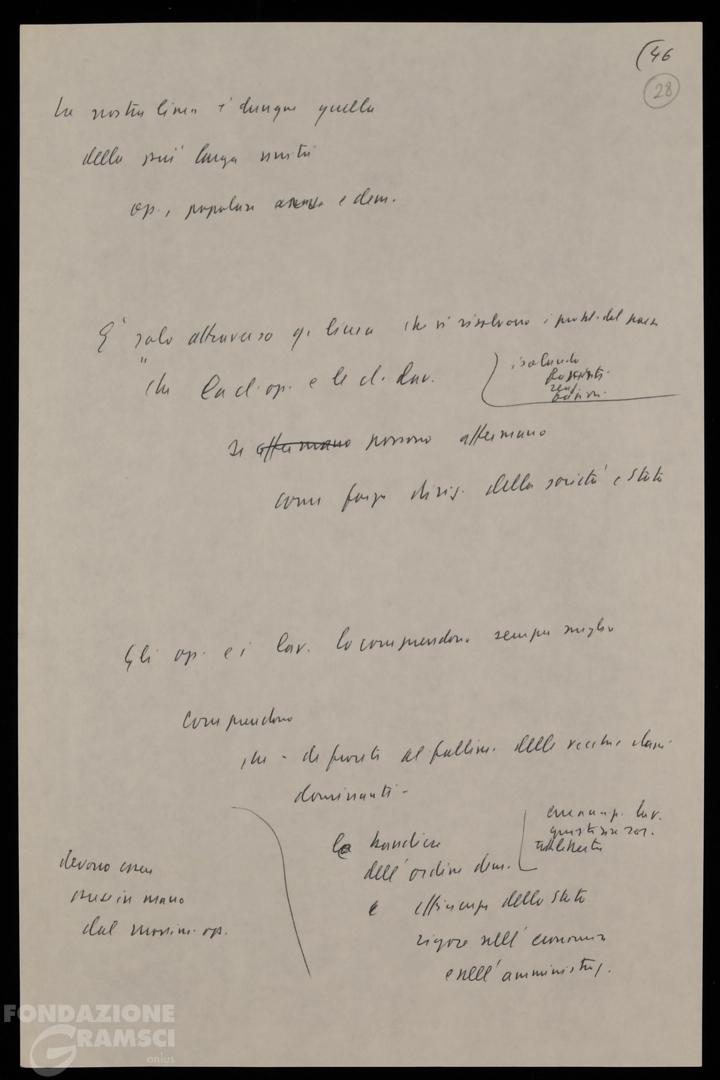 (46
28
La nostra linea è dunque quella
della più larga unità
op., popolare e dem.
E' solo attraverso q. linea che si risolvono i probl. del paese
" che la cl. op. e le cl. lav.
isolando
si affermano possono affermano
come forza dirig. della società e Stato
Gli op. e i lav. lo comprendono sempre meglio
Comprendono
che - di fronte al fallim. delle vecchie classi
dominanti -
le bandiere
dell'ordine dem.
emancip. lav.
giustizia soc.
e efficienza dello Stato
rigore nell'economia
e nell'amministraz.
devono essere
prese in mano
dal movim. op.
FONDAZIONE
GRAMSCI
onlus